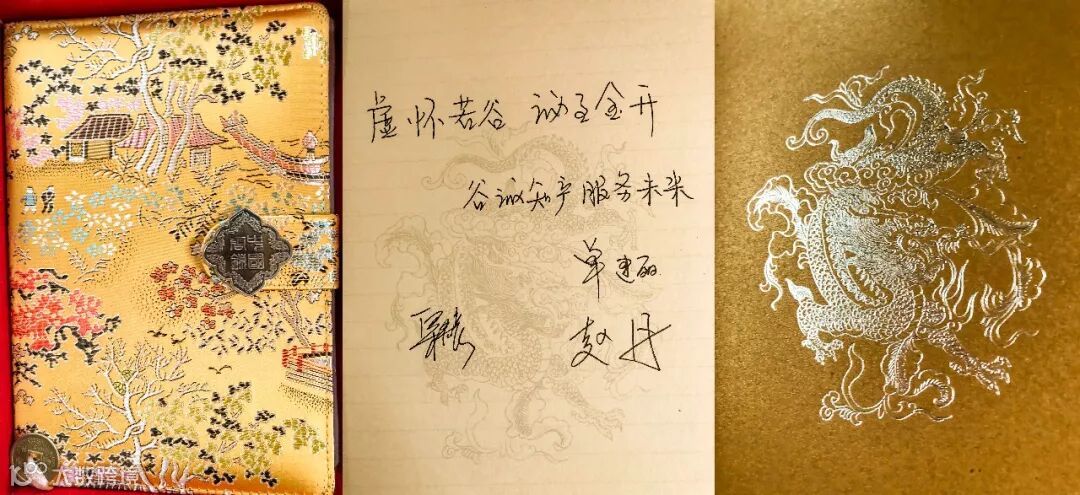 虚怀若谷 诚至金开
谷诚知产服务未来
单建丽
赵丹
大数跨境